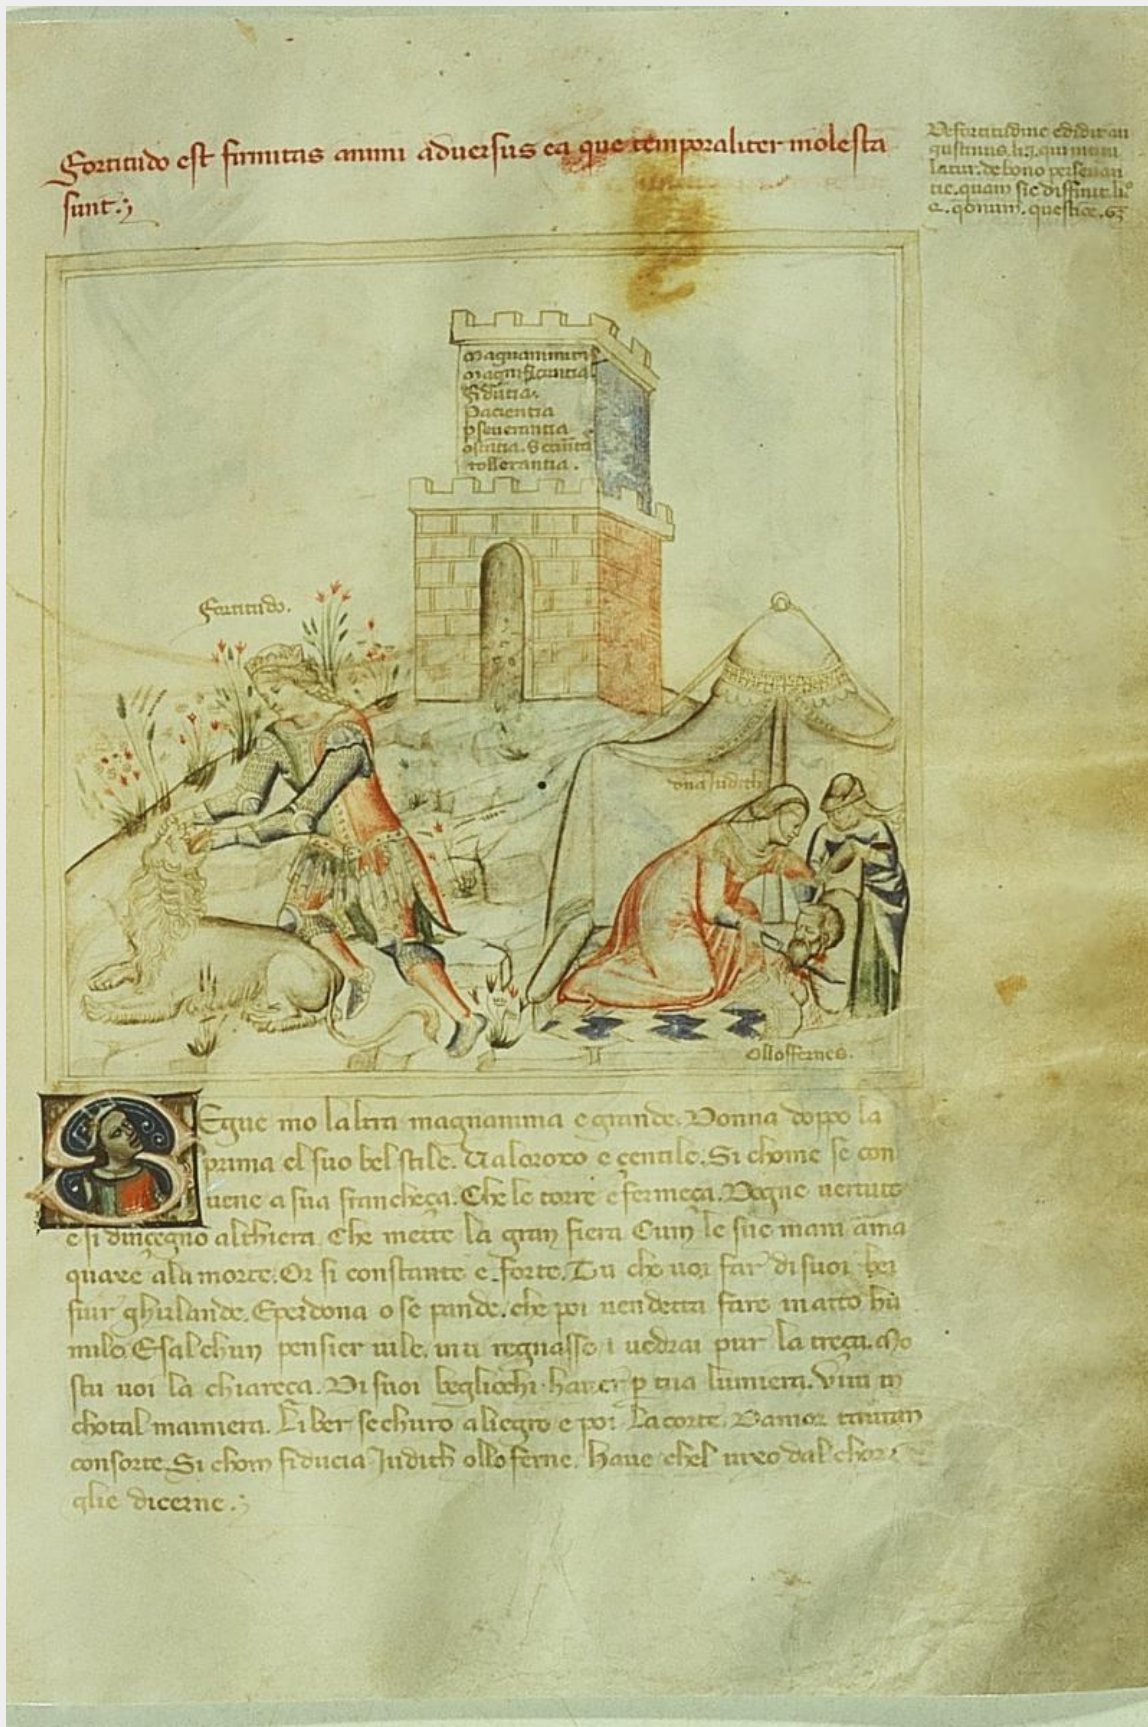 Fortitudo est firmitas animi adversus ea que temporaliter molesta
sunt.
De fortitudine edidit au
gustinus. li. qui
latur. de bono perseveran
tie. quam sic diffinit. li.
questione. 63
Magnanimitas
Magnificentia
Fiducia.
Paciencia
pseverantia
ostatia. Securita
tollerantia.
Fortitudo.
dna Judith
olloffernes.
Segue mo laltra magnanima e grande. Donna doppo la
prima el suo bel stile. Valoroxo e çentile. Si chome se con
vene a sua francheça. Che le torre e fermeça. Dogne vertute
e si dinçegno althiera. Che mette la gran fiera Cum le sue mani ama
quaxe ala morte. Or si constante e forte. Tu che voi far di suoi bei
fiur ghirlande. E perdona o se pande. che poi vendetta fare in atto hu
mile. E sal chun pensier vile. in ti regnasse i vedrai pur la treça. Mo
stu voi la chiareça. Di suoi begliocchi haver p tua lumiera. Vivi in
chotal mainiera. Liber sechuro aliegro e poi la corte. Damor
consorte. Si chom fiducia Judith olloferne. Have chel vixo dal
glie dicerne.